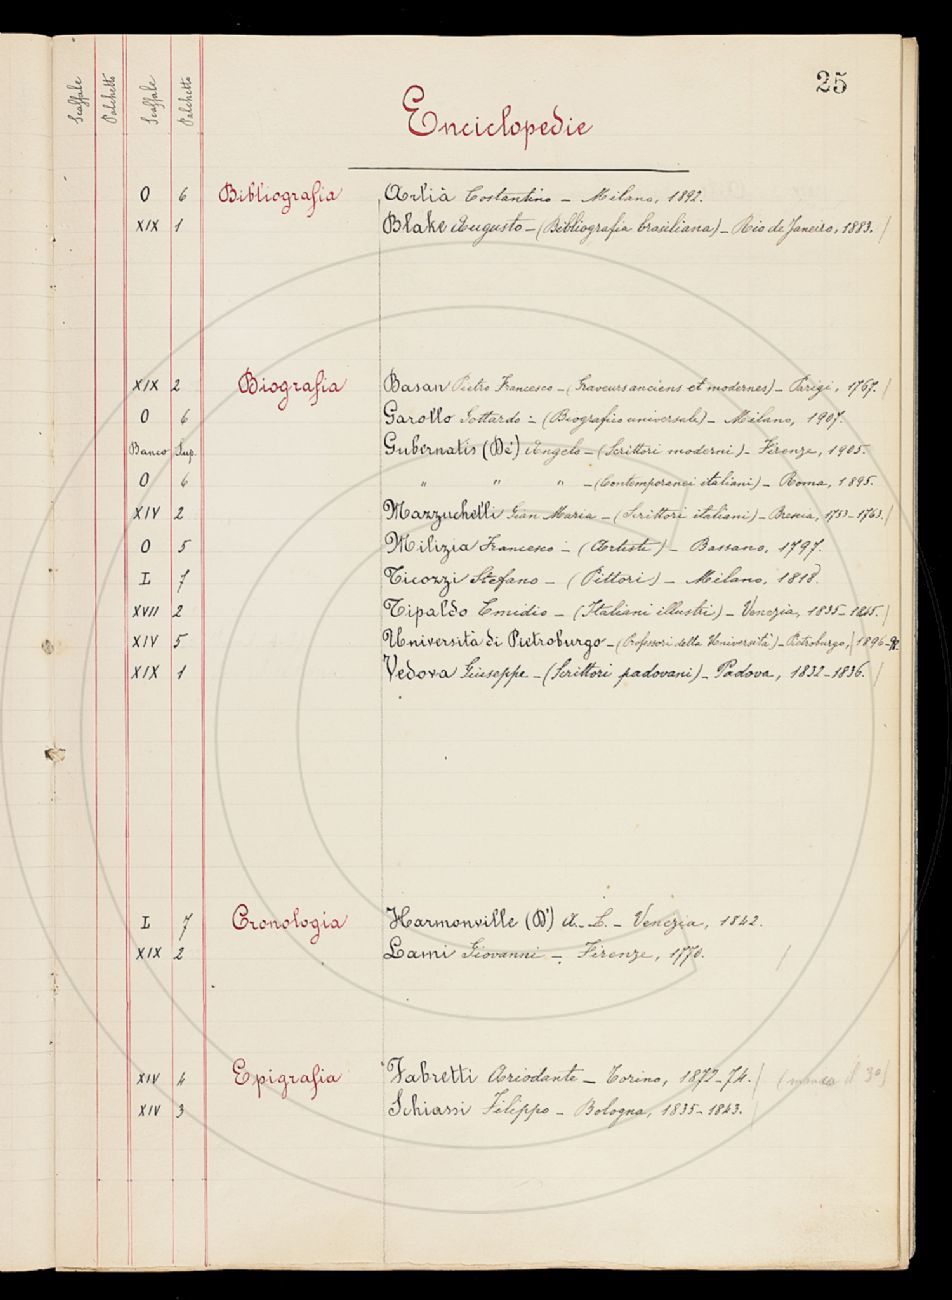 25
Scaffale Palchetto Scaffale Palchetto
Enciclopedie
O 6 Bibliografia Arlià Costantino – Milano, 1892.
XIX 1 Blake Augusto – (Bibliografia brasiliana) – Rio de Janeiro, 1883. /
XIX 2 Biografia Basan Pietro Francesco – (Graveurs anciens et modernes) – Parigi, 1767. /
O 6 Garollo Gottardo – (Biografico universale) – Milano, 1907.
Banco Sup. Gubernatis (De) Angelo – (Scrittori moderni) – Firenze, 1905.
O 6 " " " – (Contemporanei italiani) – Roma, 1895.
XIV 2 Mazzuchelli Gian Maria – (Scrittori italiani) – Brescia, 1753–1763. /
O 5 Milizia Francesco – (Artisti) – Bassano, 1797.
L 7 Ticozzi Stefano – (Pittori) – Milano, 1818.
XVII 2 Tipaldo Emidio – (Italiani illustri) – Venezia, 1835–1845. /
XIV 5 Università di Pietroburgo – (Professori della Università) – Pietroburgo, / 1896–98.
XIX 1 Vedova Giuseppe – (Scrittori padovani) – Padova, 1832–1836. /
L 7 Cronologia Harmonville (D') A. L. – Venezia, 1842.
XIX 2 Lami Giovanni – Firenze, 1770. /
XIV 4 Epigrafia Fabretti Ariodante – Torino, 1872–74. / (manca il 3º)
XIV 3 Schiassi Filippo – Bologna, 1835–1843. /